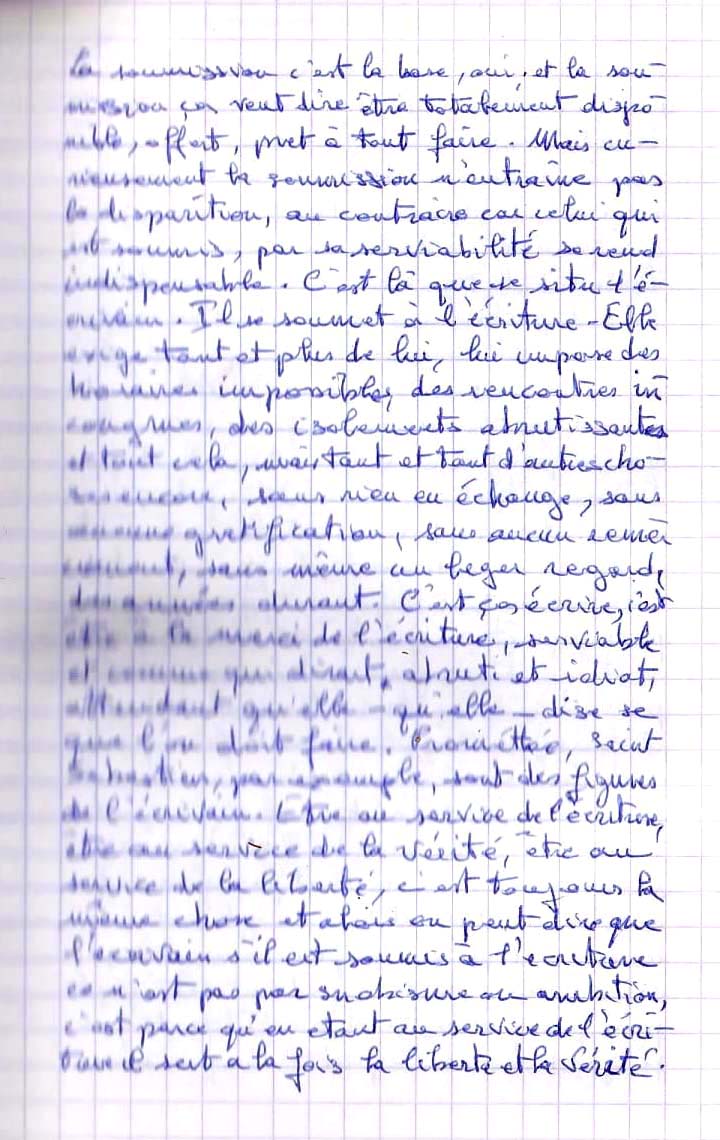 La soumission c'est la base, oui, et la sou-
mission ça veut dire être totalement dispo
nible, offert, pret à tout faire. Mais cu-
rieusement la soumission n'entraîne pas
la disparition, au contraire car celui qui
est soumis, par sa serviabilité se rend
indispensable. C'est là que se situe l'é-
crivain. Il se soumet à l'écriture - Elle
exige tant et plus de lui, lui impose des
horaires impossibles, des rencontres in
congrues, des isolements abrutissantes
et tout cela, mais tant et tant d'autres cho-
ses encore, sans rien en échange, sans
aucune gratification, sans aucun remer
ciement, sans même un leger regard,
des années durant. C'est ça écrire, c'est
être à la merci de l'écriture, serviable
et comme qui dirait, abruti et idiot,
attendant qu'elle - qu'elle - dise se
que l'on doit faire. Prométhée, Saint
Sebastien, par exemple, sont des figures
de l'écrivain. Etre au service de l'écriture,
être au service de la vérité, être au
service de la liberté, c'est toujours la
même chose et alors on peut dire que
l'ecrivain s'il est soumis à l'ecriture
ce n'est pas par snobisme ou ambition,
c'est parce qu'en etant au service de l'écri-
ture il sert à la fois la liberté et la vérité.